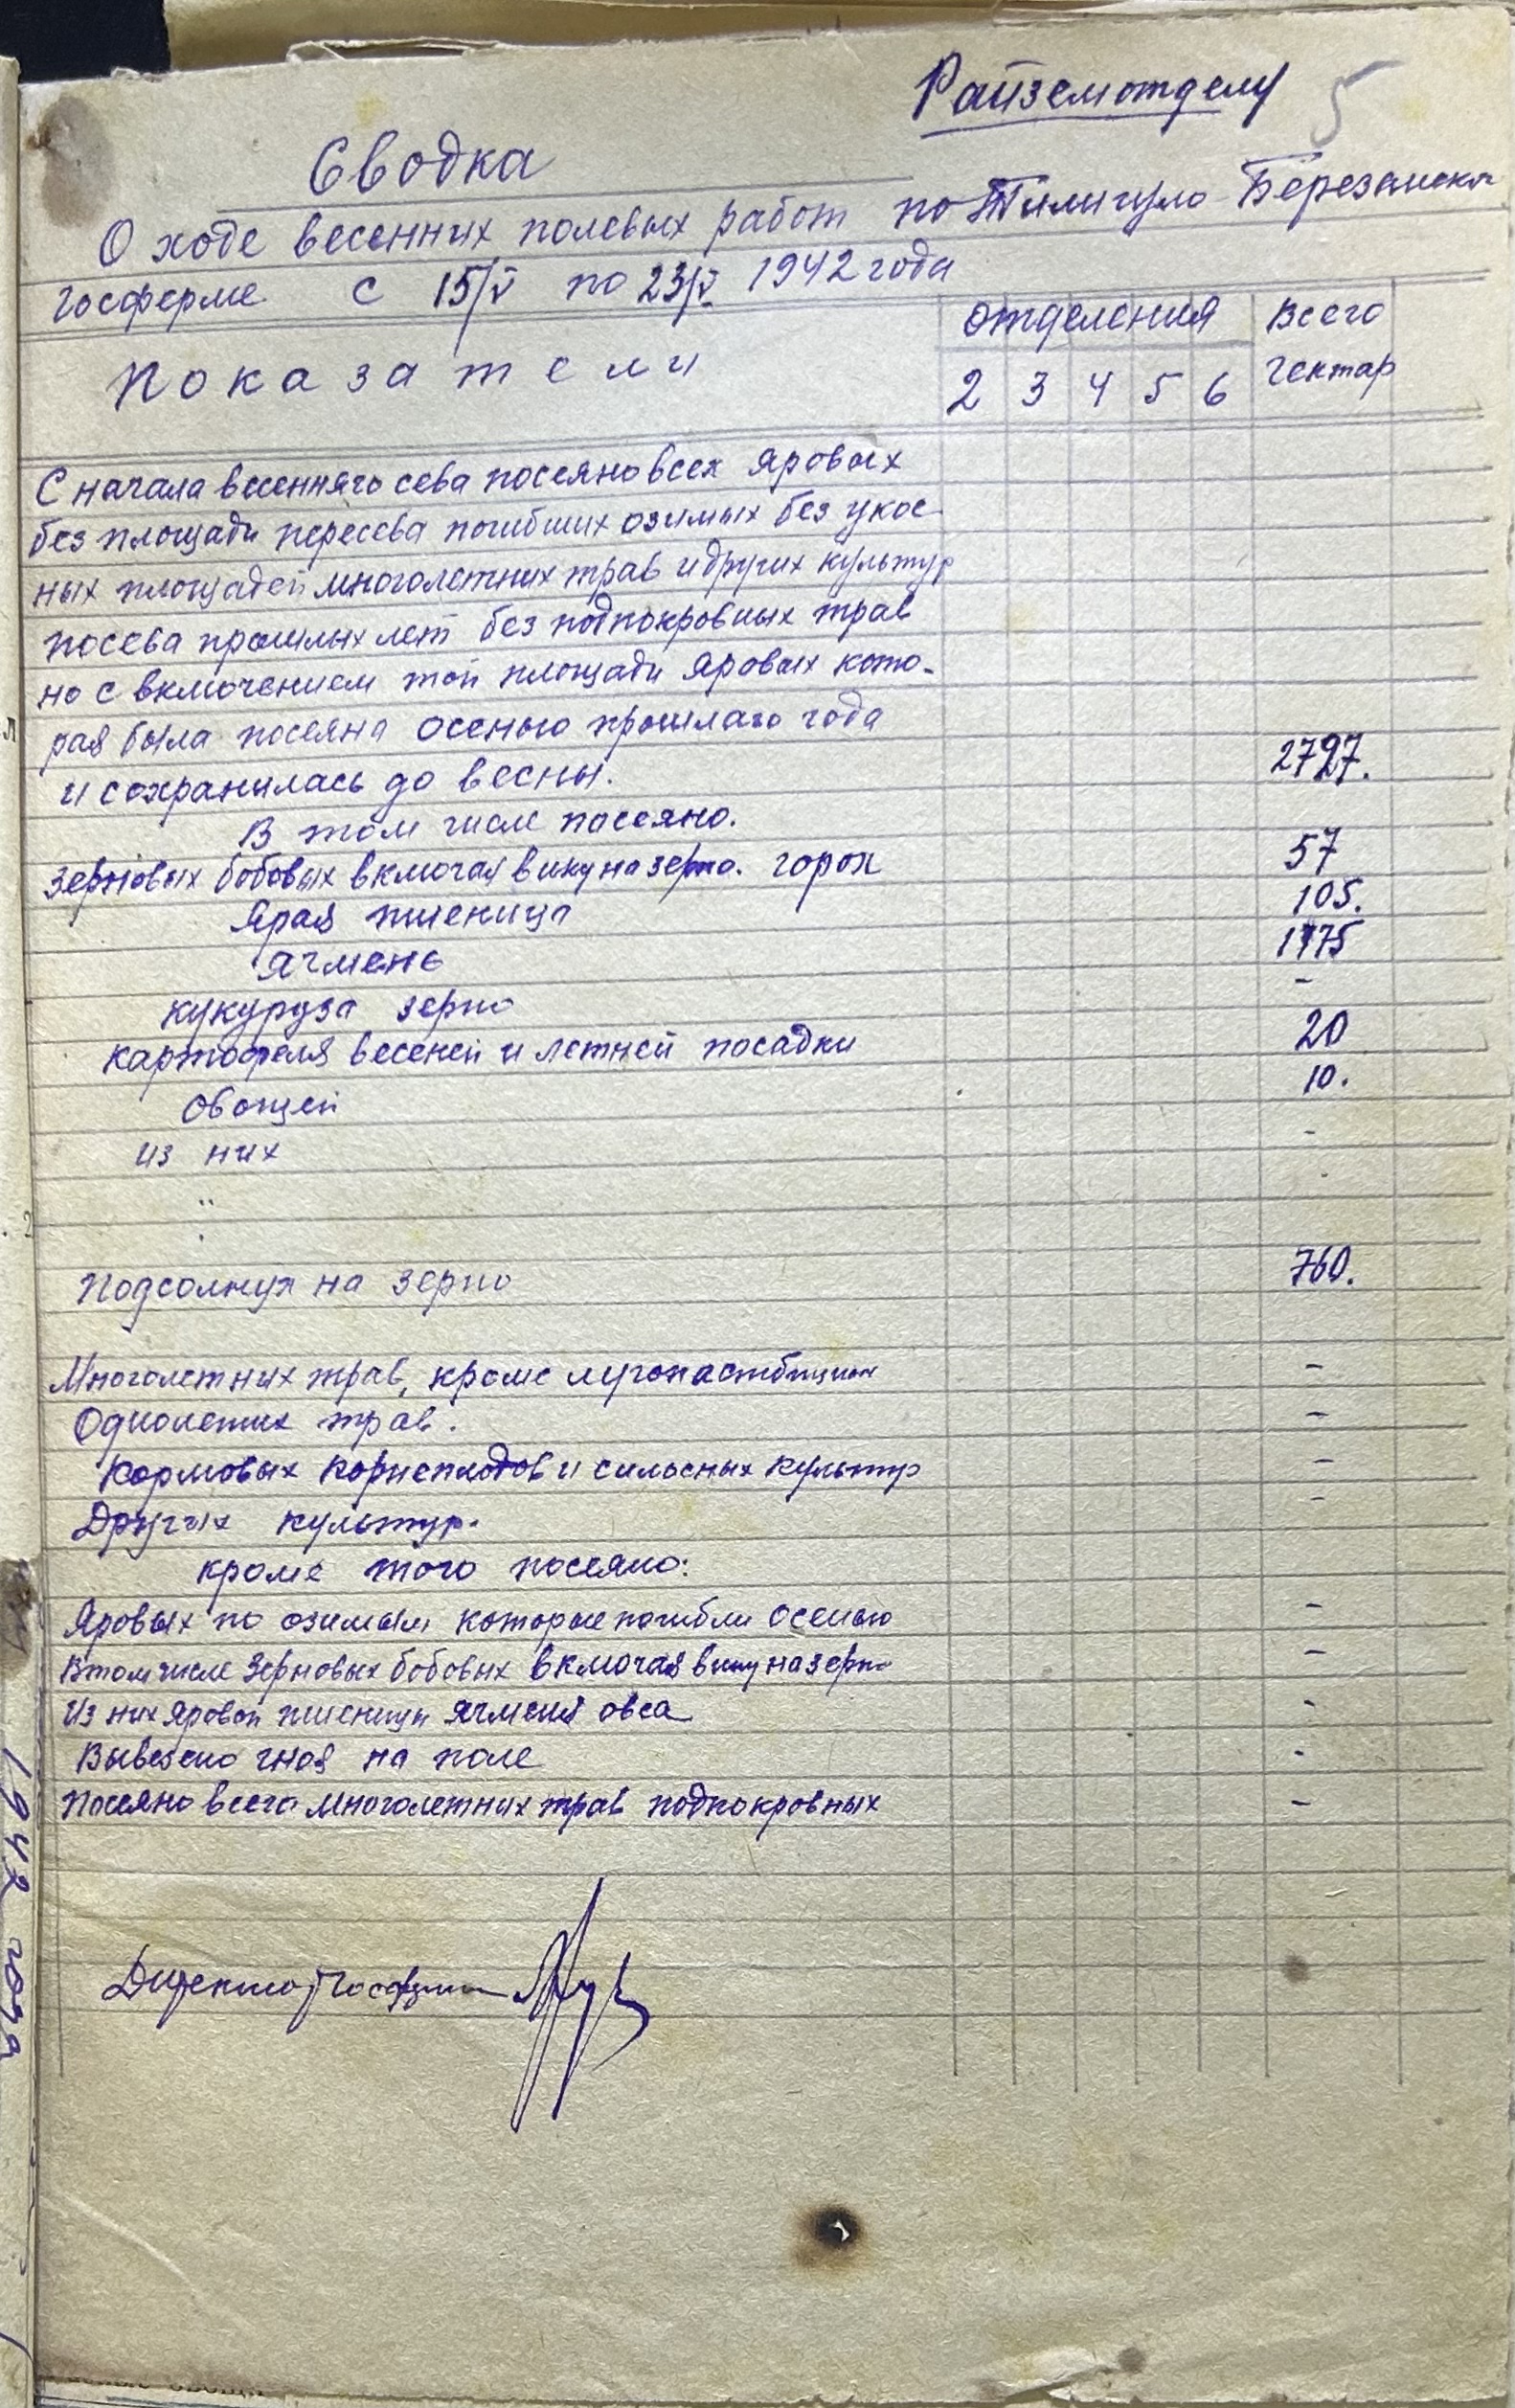 Райземотделу 5
Сводка
О ходе весенних полевых работ по Тилигуло Березанской
госферме с 15/V по 23/V 1942 года
отделения Всего
Показатели 2 3 4 5 6 гектар
С начала весенняго сева посеяно всех яровых
без площади пересева погибших озимых без укос-
ных площадей многолетних трав и других культур
посева прошлых лет без подпокровных трав
но с включением той площади яровых кото-
рая была посеяна осенью прошлаго года
и сохранилась до весны. 2797.
В том числе посеяно.
Зерновых бобовых включая вику на зерно. горох 57
Ярая пшеница 105.
Ячмень 1775
кукуруза зерно -
картофеля весеней и летней посадки 20
Овощей 10.
из них -
"
Подсолнух на зерно 760.
Многолетних трав, кроме лугопастбищн -
Однолетих трав. -
Кормовых корнеплодов и силосных культур -
Других культур. -
кроме того посеяно:
Яровых по озимым которые погибли осенью -
В том числе зерновых бобовых включая вику на зерно -
Из них яровой пшеницы ячменя овса -
Вывезено гноя на поле -
Посеяно всего многолетних трав подпокровных -
Директор Госфермы
1942 года